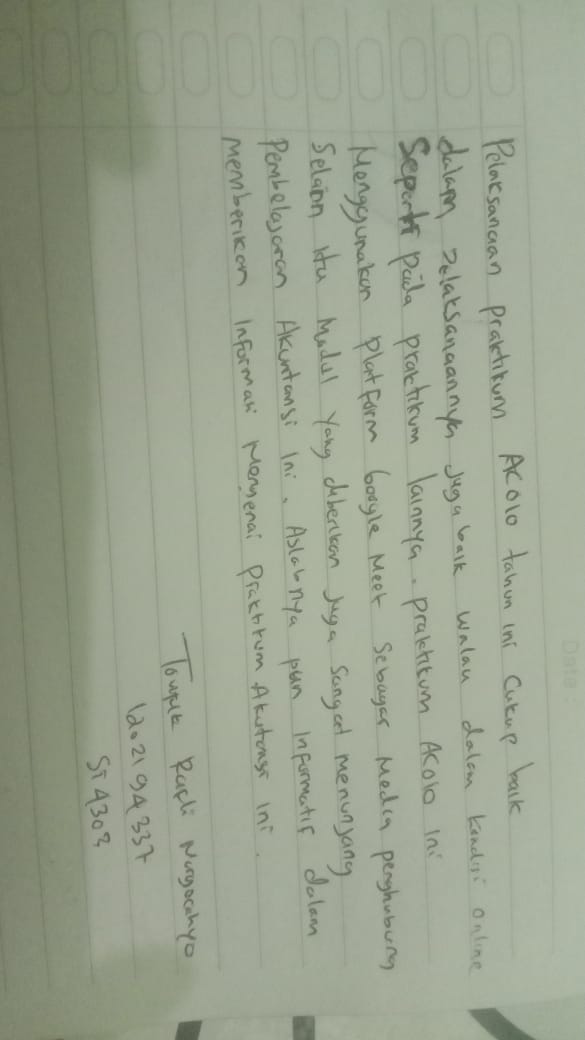 Date :
Pelaksanaan praktikum ACOLO tahun ini Cukup baik
dalam pelaksanaannya juga baik walau dalam kondisi online
Seperti pada praktikum lainnya. praktikum ACOLO ini
Menggunakan Platform Google Meet Sebagai Media penghubung
Selain itu Modul yang diberikan juga sangat menunjang
Pembelajaran Akuntansi ini. Aslabnya pun informatif dalam
memberikan informasi Mengenai Praktikum Akutansi ini.
Rafli
1202194337